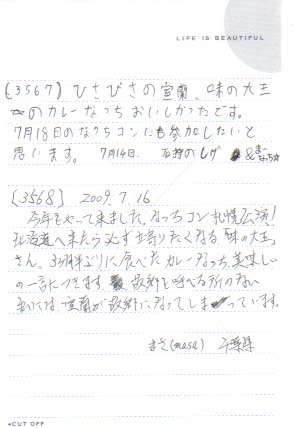 LIFE IS BEAUTIFUL
(3567) ひさびさの室蘭、味の大王
のカレーなっちおいしかったです。
7月18日のなっちコンにも参加したいと
思います。 7月14日.
[3568] 2009.7.16
今年もやって来ました、なっちコン札幌広演!
北海道へ来たら必ず寄りたくなる「味の大王」
さん。3ヶ月半ぶりに食べたカレーなっち、美味しい
の一言につきます 故郷を呼べる所のない
私には、室蘭が故郷になってしまっています。
まさ(masa) 千葉県
◂CUT OFF